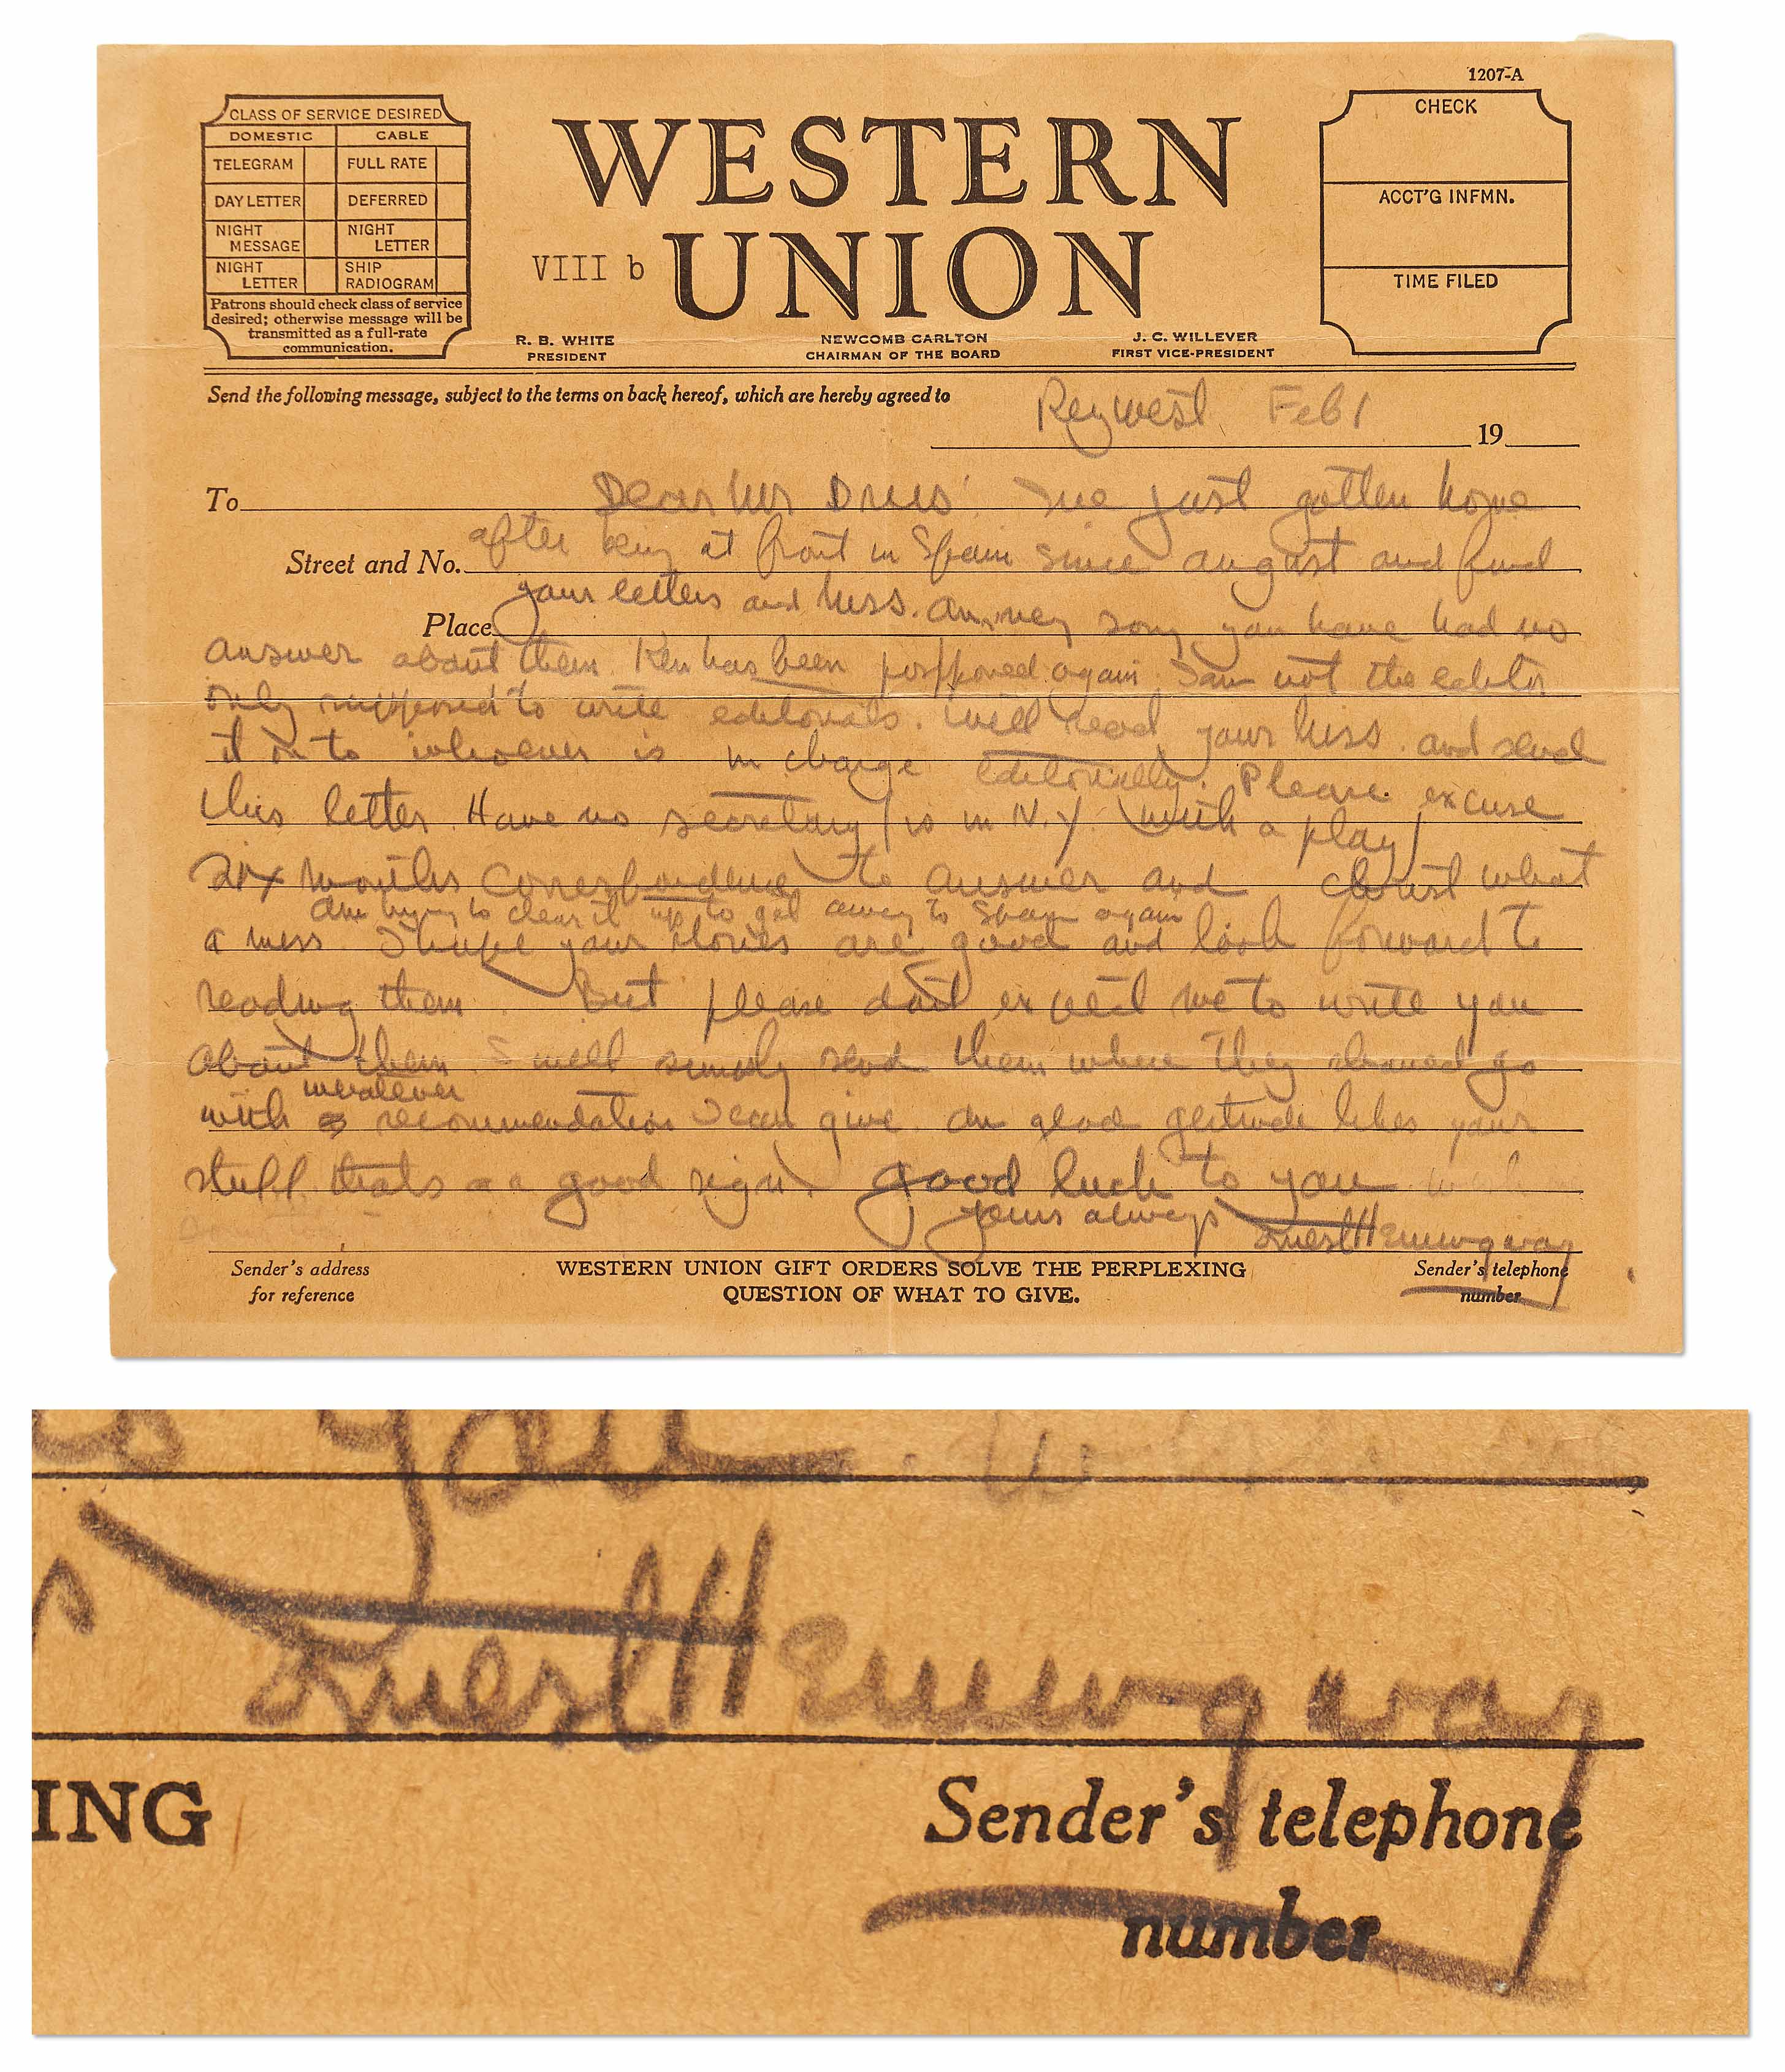 1207-A
CLASS OF SERVICE DESIRED
DOMESTIC CABLE
TELEGRAM FULL RATE
DAY LETTER DEFERRED
NIGHT MESSAGE NIGHT LETTER
NIGHT LETTER SHIP RADIOGRAM
Patrons should check class of service
desired; otherwise message will be
transmitted as a full-rate
communication.
WESTERN
UNION
VIII b
R. B. WHITE
PRESIDENT
NEWCOMB CARLTON
CHAIRMAN OF THE BOARD
J. C. WILLEVER
FIRST VICE-PRESIDENT
CHECK
ACCT'G INFMN.
TIME FILED
Send the following message, subject to the terms on back hereof, which are hereby agreed to
Key West Feb 1
19
To Dear Mr I've just gotten home
Street and No. after being at front in Spain since august and find
Place your letters and Mss. Am very sorry you have had no
answer about them. Ken has been postponed again. I am not the editor
only supposed to write editorials. Will read your Mss. and send
it on to whoever is in charge editorially. Please excuse
this letter. Have no secretary (is in N.Y. with a play)
six months correspondence to answer and christ what
am trying to clear it up to get away to Spain again
a mess I hope your stories are good and look forward to
reading them. But please dont expect me to write you
about them I will simply send them where they should go
whatever
with recommendation I can give. Am glad gertrude likes your
stuff. thats a good sign. good luck to you
yours always Ernest Hemingway
Sender's address
for reference
WESTERN UNION GIFT ORDERS SOLVE THE PERPLEXING
QUESTION OF WHAT TO GIVE.
Sender's telephone
number
you
Ernest Hemingway
ING
Sender's telephone
number